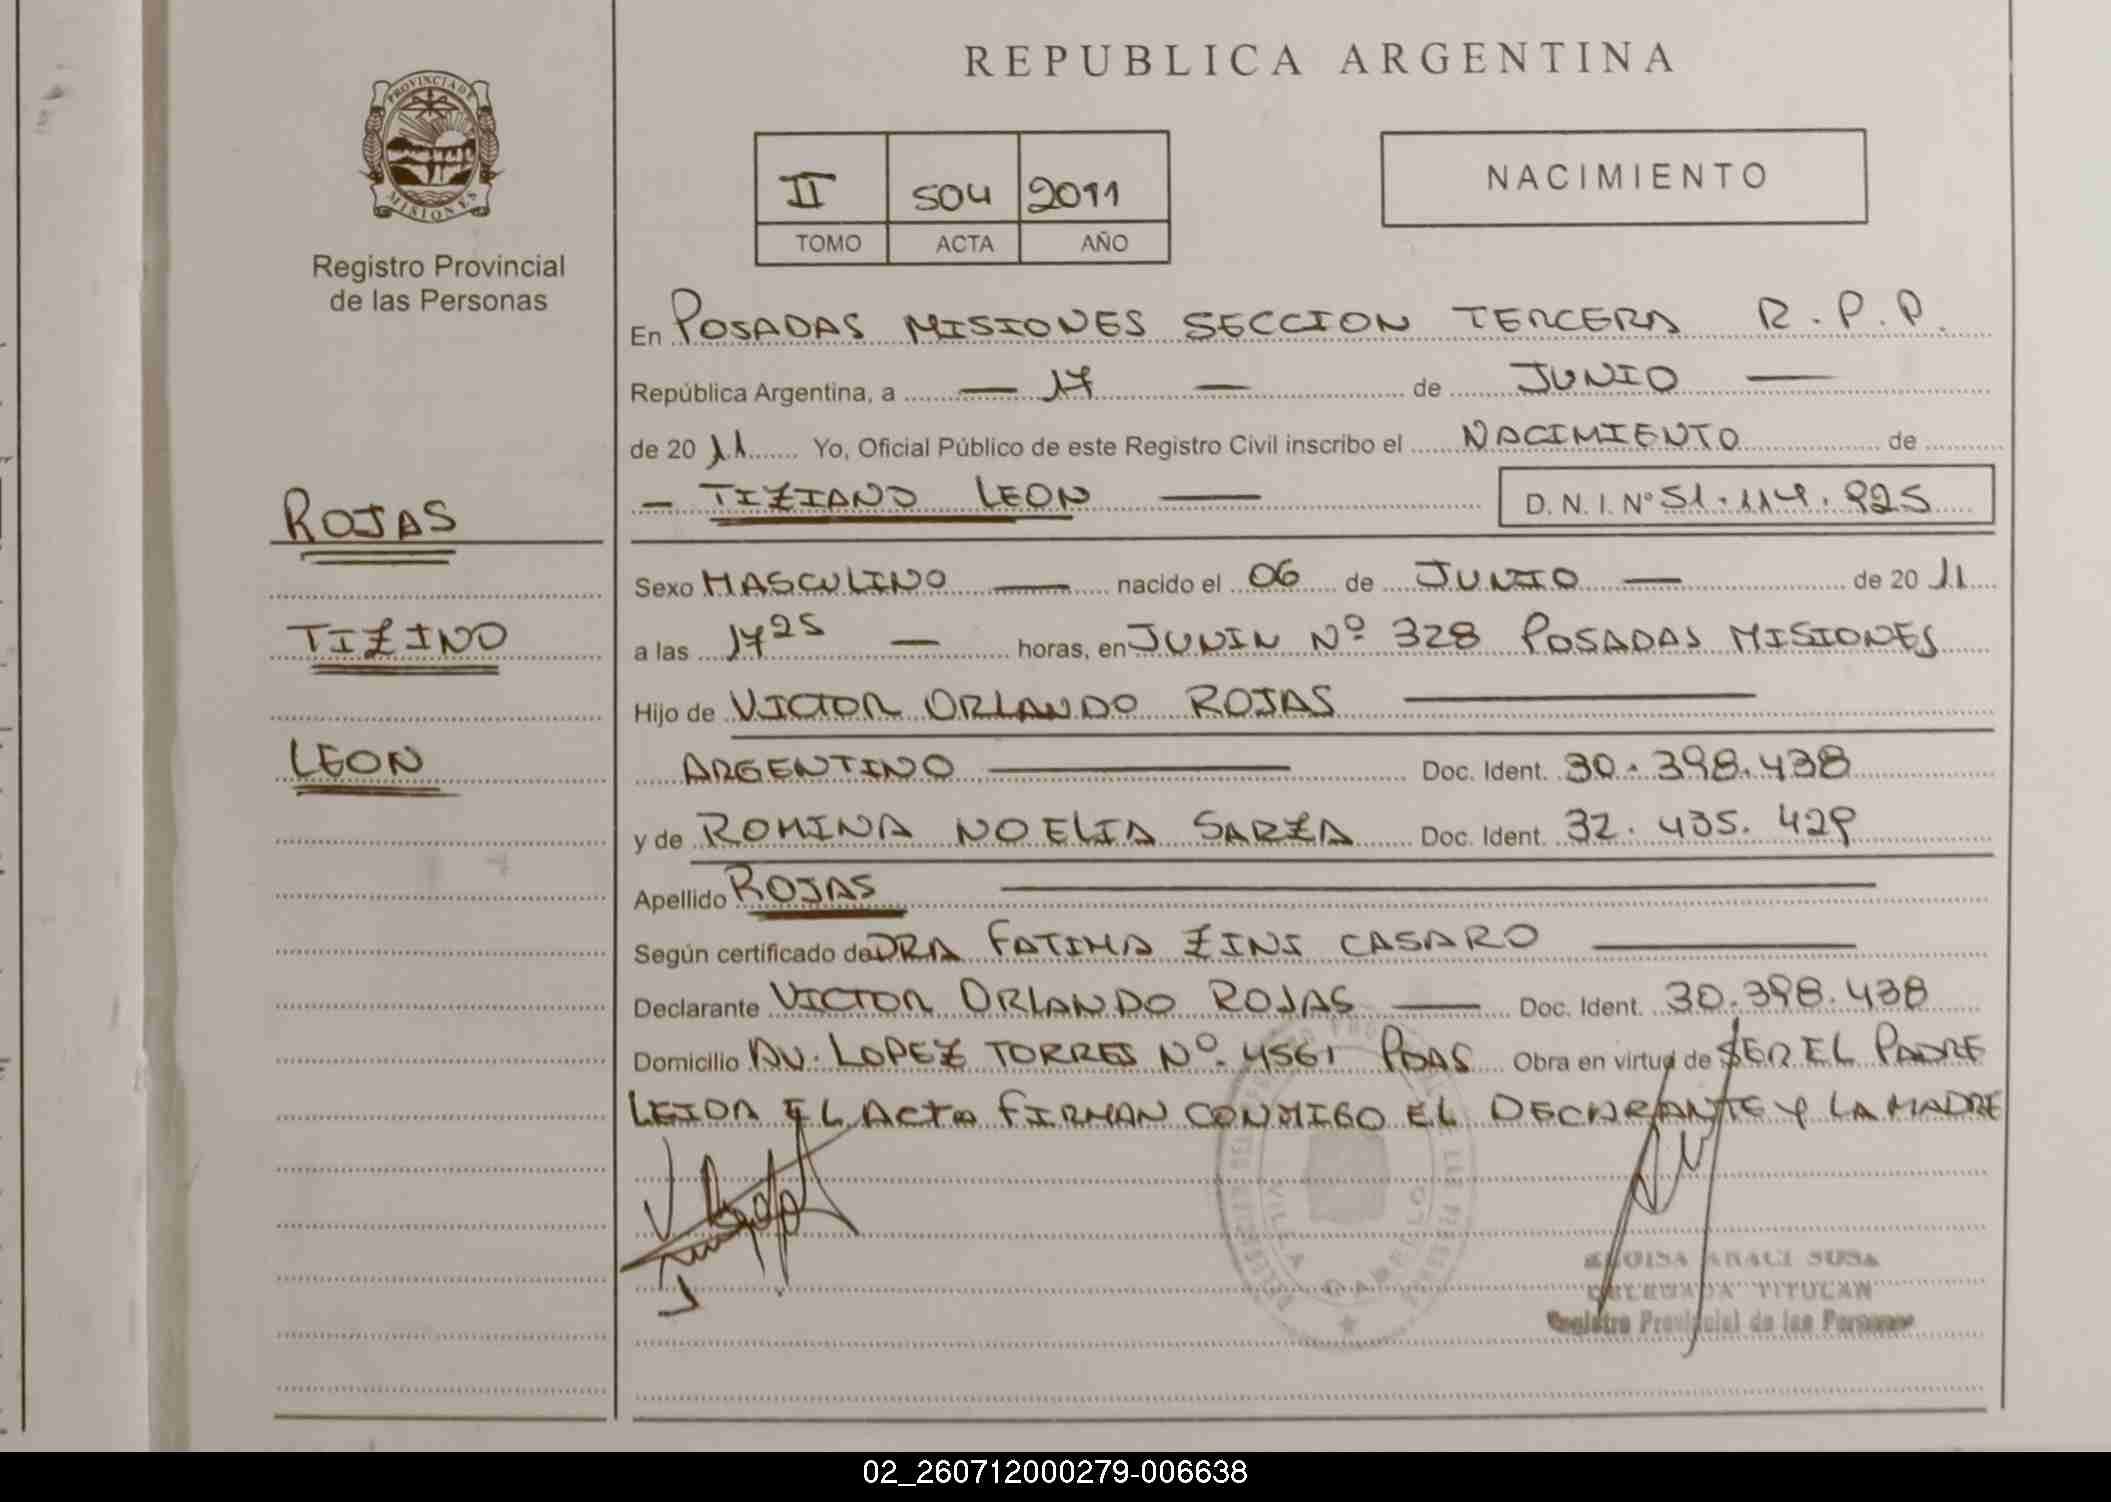 REPUBLICA ARGENTINA
PROVINCIA DE
MISIONES
Registro Provincial
de las Personas
II 504 2011
TOMO ACTA AÑO
NACIMIENTO
En POSADAS MISIONES SECCION TERCERA R.P.P.
República Argentina, a — 17 — de JUNIO —
de 20 11 Yo, Oficial Público de este Registro Civil inscribo el NACIMIENTO de
— TIZIANO LEON — D. N. I. Nº 51.114.925
ROJAS
TIZINO
LEON
Sexo MASCULINO — nacido el 06 de JUNIO — de 20 11
a las 17 25 — horas, en JUNIN Nº 328 POSADAS MISIONES
Hijo de VICTOR ORLANDO ROJAS —
ARGENTINO — Doc. Ident. 30.398.438
y de ROMINA NOELIA SARZA Doc. Ident. 32.435.429
Apellido ROJAS —
Según certificado de DRA FATIMA ZINI CASARO —
Declarante VICTOR ORLANDO ROJAS — Doc. Ident. 30.398.438
Domicilio AV. LOPEZ TORRES Nº 4561 PDAS Obra en virtud de SER EL PADRE
LEIDA EL ACTA FIRMAN CONMIGO EL DECLARANTE Y LA MADRE
VILLA CABELLO
ARACI SOSA
DELEGADA TITULAR
Registro Provincial de las Personas
02_260712000279-006638